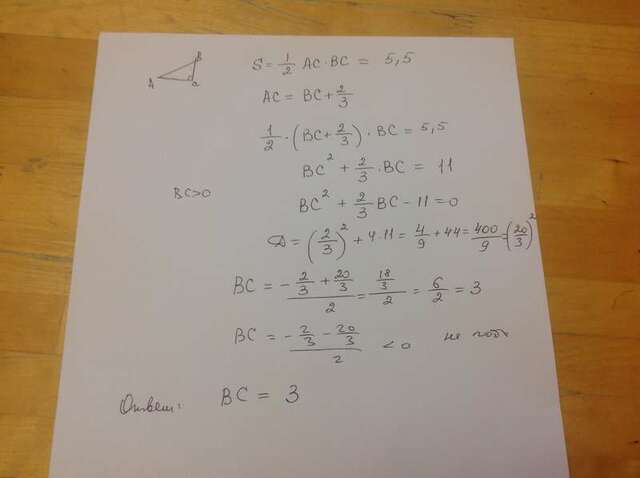 A B C
S = 1/2 AC · BC = 5,5
AC = BC + 2/3
1/2 · (BC + 2/3) · BC = 5,5
BC² + 2/3 · BC = 11
BC > 0
BC² + 2/3 BC - 11 = 0
D = (2/3)² + 4·11 = 4/9 + 44 = 400/9 = (20/3)²
BC = (-2/3 + 20/3)/2 = (18/3)/2 = 6/2 = 3
BC = (-2/3 - 20/3)/2 < 0 не
Ответ: BC = 3